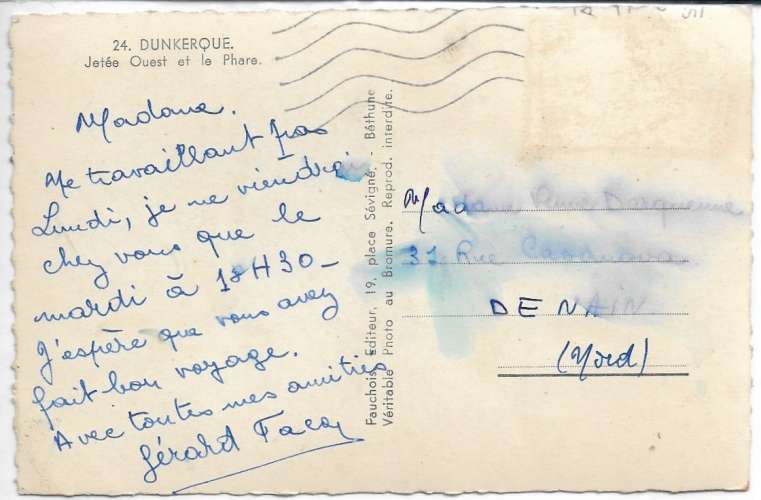 24. DUNKERQUE.
Jetée Ouest et le Phare.
Madame.
Ne travaillant pas
Lundi, je ne viendrai
chez vous que le
mardi à 18H30_
J'espère que vous avez
fait bon voyage.
Avec toutes mes amitiés
Gérard
Fauchois Editeur, 19, place Sévigné. - Béthune
Véritable Photo au Bromure. Reprod. interdite.
Madame
Rue
DENAIN
(Nord)